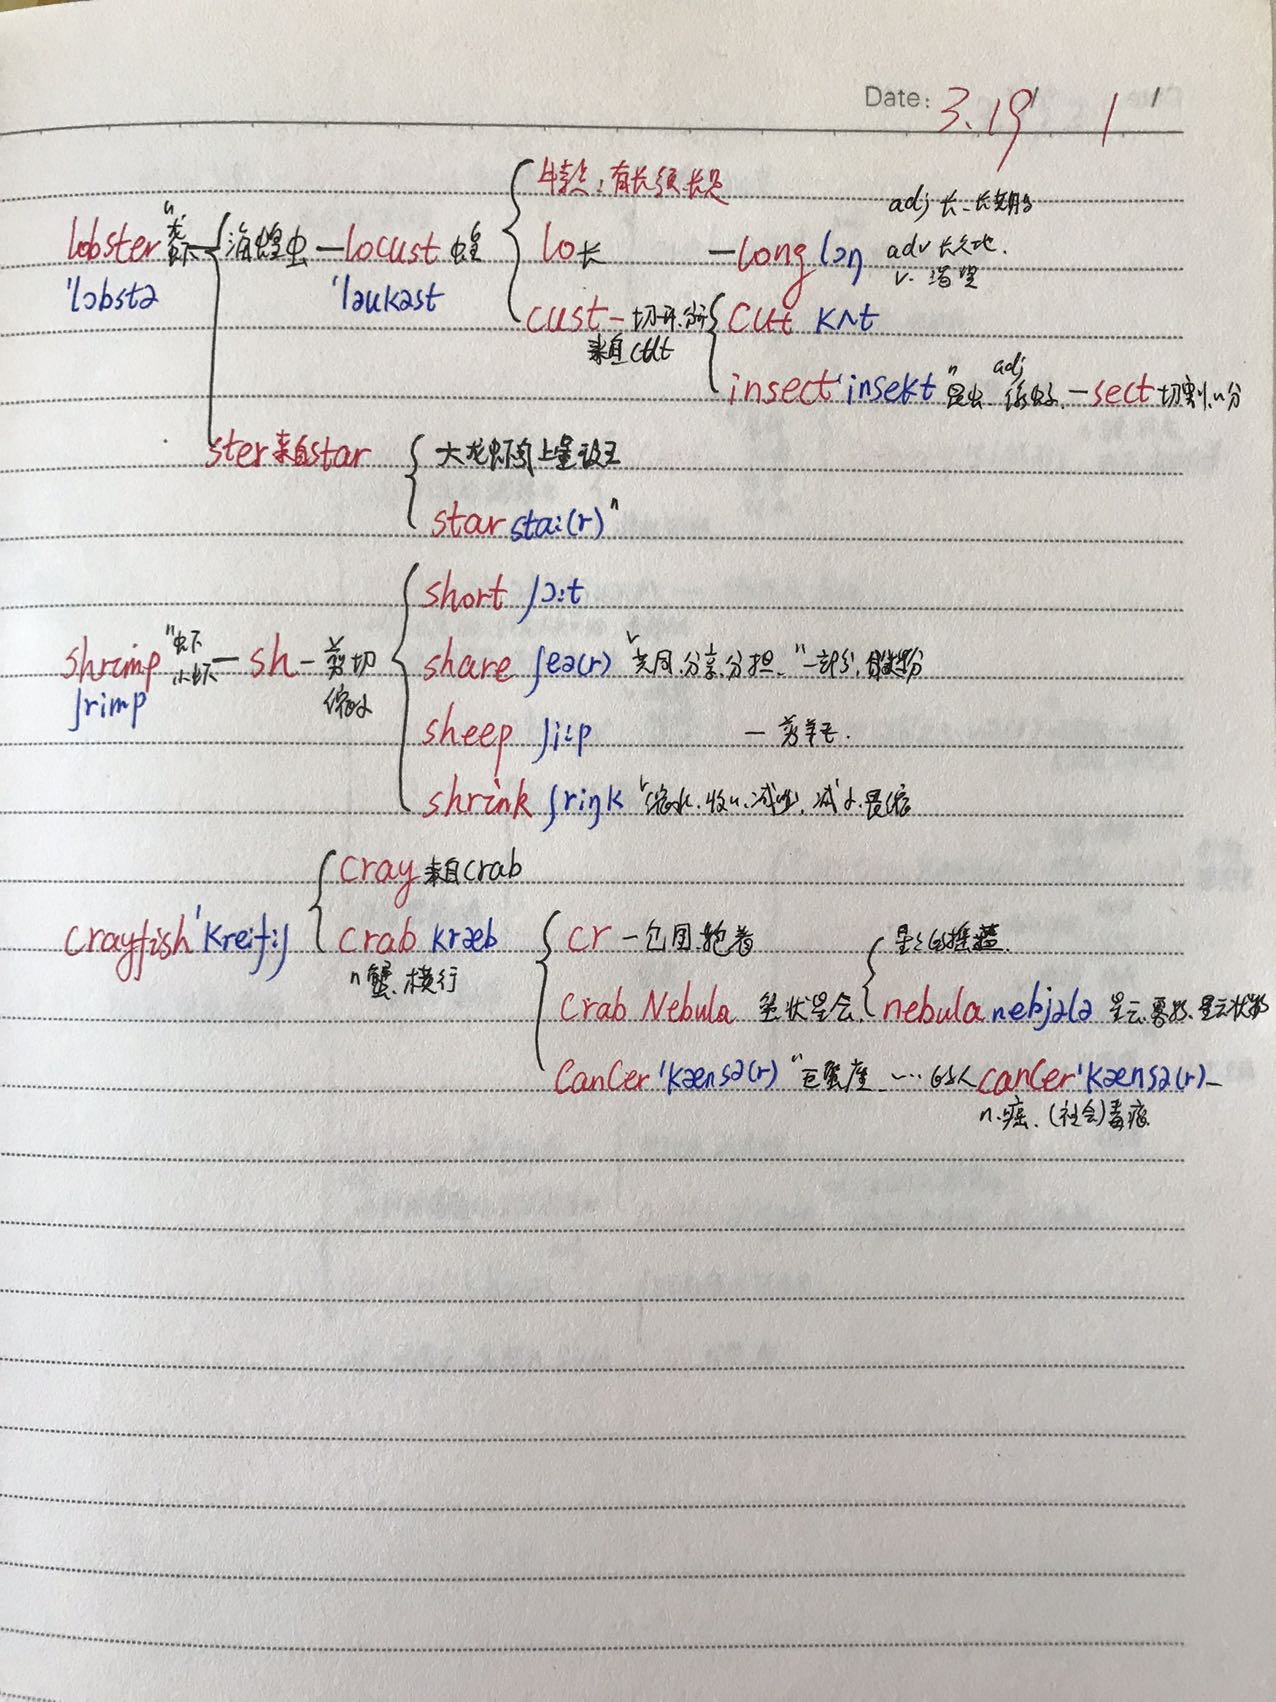 Date: 3.19 1
特点:有长须长足
adj 长、长期的
lobster n 龙虾 海蝗虫 — locust 蝗 lo 长 — long lɔŋ adv 长久地.
v. 渴望
'lɔbstə 'ləukəst
cust — 切开.分开 cut kʌt
来自cut
insect 'insekt n 昆虫 adj — sect 切割、分
ster 来自star 大龙虾向上
star sta:(r) n
short ʃɔ:t
shrimp n 虾 小虾 — sh — 剪切 share ʃeə(r) v 共同.分享.分担. n 一部分.
ʃrimp 缩小
sheep ʃi:p — 剪羊毛.
shrink ʃriŋk v 缩水、收、减少、减小.畏缩
cray 来自crab
crayfish 'kreifiʃ crab kræb cr — 包围.抱着
n 蟹.横行
Crab Nebula 蟹状星云 nebula nebjələ 星云
Cancer 'kænsə(r) n 巨蟹座 ……的人 cancer 'kænsə(r) —
n.癌、(社会)毒瘤